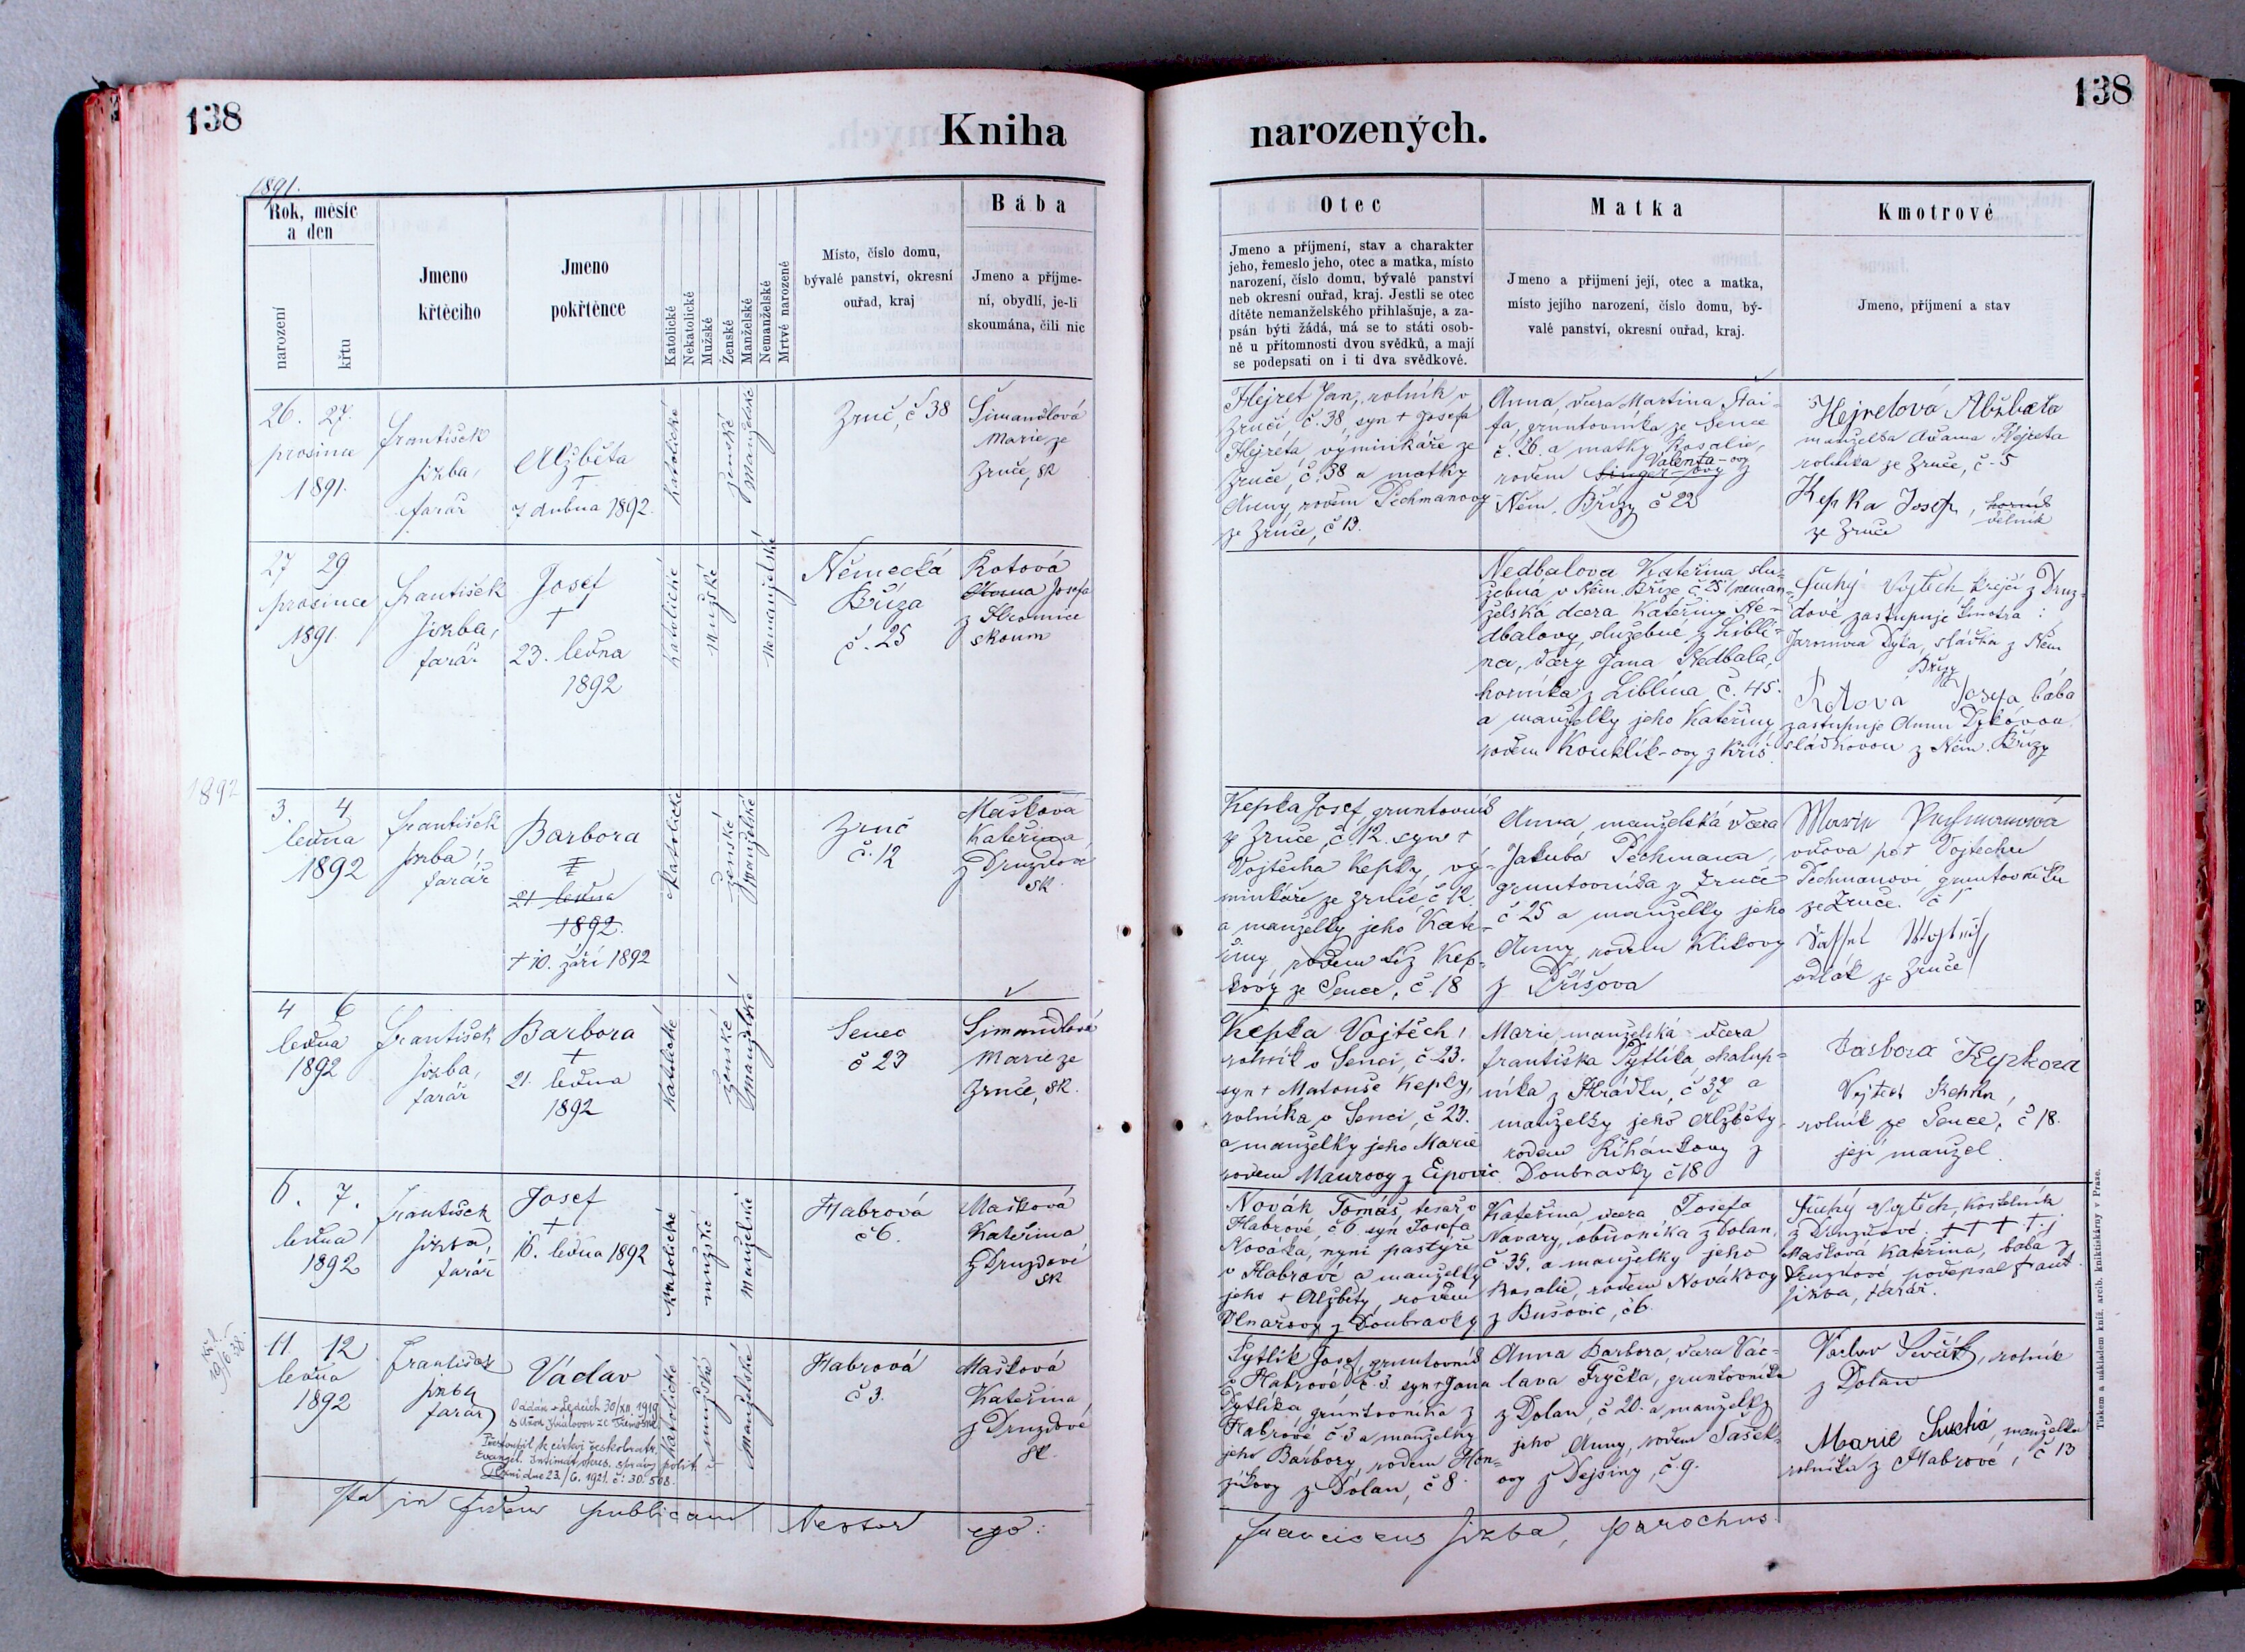 138
138
Kniha
narozených.
1891.
Rok, měsíc
a den
narození
křtu
Jmeno
křtěcího
Jmeno
pokřtěnce
Katolické
Nekatolické
Mužské
Ženské
Manželské
Nemanželské
Mrtvé narozené
Místo, číslo domu,
bývalé panství, okresní
ouřad, kraj
Bába
Jmeno a příjme-
ní, obydlí, je-li
skoumána, čili nic
Otec
Jmeno a příjmení, stav a charakter
jeho, řemeslo jeho, otec a matka, místo
narození, číslo domu, bývalé panství
neb okresní ouřad, kraj. Jestli se otec
dítěte nemanželského přihlašuje, a za-
psán býti žádá, má se to státi osob-
ně u přítomnosti dvou svědků, a mají
se podepsati on i ti dva svědkové.
Matka
Jmeno a příjmení její, otec a matka,
místo jejího narození, číslo domu, bý-
valé panství, okresní ouřad, kraj.
Kmotrové
Jmeno, příjmení a stav
26. 27.
prosince
1891.
František
Jizba,
farář
Alžběta
†
7 dubna 1892.
Katolické
ženské
Manželské
Zruč, č 38
Šimandlová
Marie ze
Zruče, sk
Hejret Jan, rolník v
Zruči č. 38, syn † Josefa
Hejreta, výminkáře ze
Zruče, č. 38 a matky
Anny, rodem Pechmanovy
ze Zruče, č 13.
Anna, dcera Martina Štai-
fa, gruntovníka ze Sence
č. 26. a matky Rosalie,
Valenta-ovy
rodem Singer-ovy z
Něm. Břízy č 22
Hejretová Alžbeta
manželka Adama Hejreta
rolníka ze Zruče, č. 5
Kepka Josef, horník
dělník
ze Zruče
27 29
prosince
1891.
František
Jizba,
farář
Josef
†
23. ledna
1892
Katolické
Mužské
Nemanželské
Německá
Bříza
č. 25
Rotová
Josefa
z Hromnice
skoum
Nedbalova Kateřina slu-
žebná v Něm. Bříze č 25 (neman-
želská dcera Kateřiny Ne-
dbalovy, služebné z Libli-
na, dcery Jana Nedbala,
horníka z Liblína č. 45.
a manželky jeho Kateřiny
rodem Kouklík-ovy z Kříš.
Suchý Vojtěch krejčí z Druz-
dové zastupuje kmotra:
Jaromíra Dyka, sládka z Něm
Břízy
Rotová Josefa bába
zastupuje Annu Dykovou
sládkovou z Něm. Břízy
1892
3. 4
ledna
1892
František
Jizba,
farář
Barbora
21 ledna
1892.
† 10. září 1892
Katolické
ženské
manželské
Zruč
č. 12
Mašková
Kateřina
z Druzdové
sk.
Kepka Josef, gruntovník
ze Zruče, č 12. syn †
Vojtěcha Kepky, vý-
minkáře ze Zruče, č 12.
a manželky jeho Kate-
řiny, rodem též Kep-
kovy ze Sence, č. 18
Anna, manželská dcera
Jakuba Pechmana,
gruntovníka z Zruče
č 25 a manželky jeho
Anny, rodem Klikovy
z Dříšova
Marie Puchmanová
vdova po † Vojtěchu
Pechmanovi, gruntovníku
ze Zruče. č 1
sedlák ze Zruče
4 6
ledna
1892
František
Jizba,
farář
Barbora
†
21. ledna
1892
Katolické
ženské
manželské
Senec
č 23
Šimandlová
Marie ze
Zruče, sk.
Kepka Vojtěch,
rolník v Senci, č. 23.
syn † Matouše Kepky,
rolníka v Senci, č 23.
a manželky jeho Marie
rodem Maurovy z Eipovic.
Marie manželská dcera
Františka Pytlíka, chalup-
níka z Hrádku, č 37 a
manželky jeho Alžběty,
rodem Říhánkovy z
Doubravky č 18
Barbora Kepková
Vojtěch Kepka,
rolník ze Sence, č 18.
její manžel.
6. 7.
ledna
1892
František
Jizba,
farář
Josef
†
16. ledna 1892
Katolické
mužské
Manželské
Habrová
č 6.
Mašková
Kateřina
z Druzdové
sk
Novák Tomáš, tesař v
Habrové, č 6 syn Josefa
Nováka, nyní pastýře
v Habrové a manželky
jeho † Alžběty rodem
Vlnařovy z Doubravky
Kateřina dcera Josefa
Navary, obuvníka z Dolan,
č 35, a manželky jeho
Rosalie, rodem Novákovy
z Bušovic, č 6.
Suchý Vojtěch, kostelník
z Druzdové, † † † †
Mašková Kateřina, bába z
Druzdové podepsal Frant.
Jizba, farář.
11. 12
ledna
1892
František
Jizba
farář
Václav
Oddán v Ledcích 30/XII. 1919
s Annou ze Třemošné
Přestoupil k církvi českobratr.
Evangel. Intimát okres. správy polit. v
Plzni dne 23./6. 1921. č: 30.508.
Katolické
mužské
Manželské
Habrová
č 3.
Mašková
Kateřina
z Druzdové
sk.
Pytlík Josef, gruntovník
v Habrové č. 3 syn † Jana
Pytlíka gruntovníka z
Habrové č 3 a manželky
jeho Barbory, rodem Hon-
zíkovy z Dolan, č 8.
Anna Barbora, dcera Vác-
lava Fryčka, gruntovníka
z Dolan, č 20. a manželky
jeho Anny, rodem Tašek-
ovy z Dejšiny, č. 9.
Václav Sivák, rolník
z Dolan
Marie Suchá, manželka
rolníka z Habrové, č 13
Ita in fidem publicam Nestor ego:
Franciscus Jizba, parochus
Tiskem a nákladem kníž. arcib. knihtiskárny v Praze.